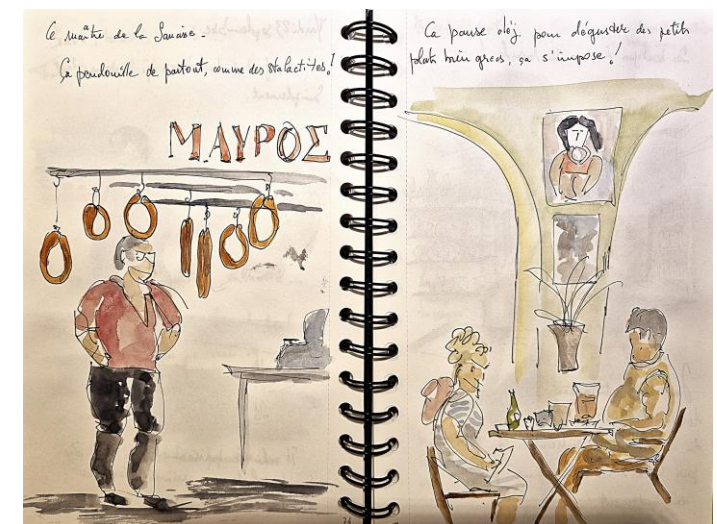 Le maître de la Saucisse.
Ça pendouille de partout, comme des stalactites!
ΜΑΥΡΟΣ
La pause déj pour déguster des petits
plats bien gras, ça s'impose!